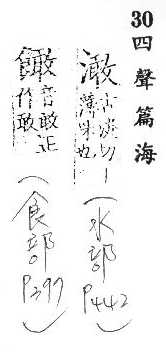 30 四聲篇海
澉 古淡切
薄味也
(水部 P442)
音敢正
作敢
(食部 P399)